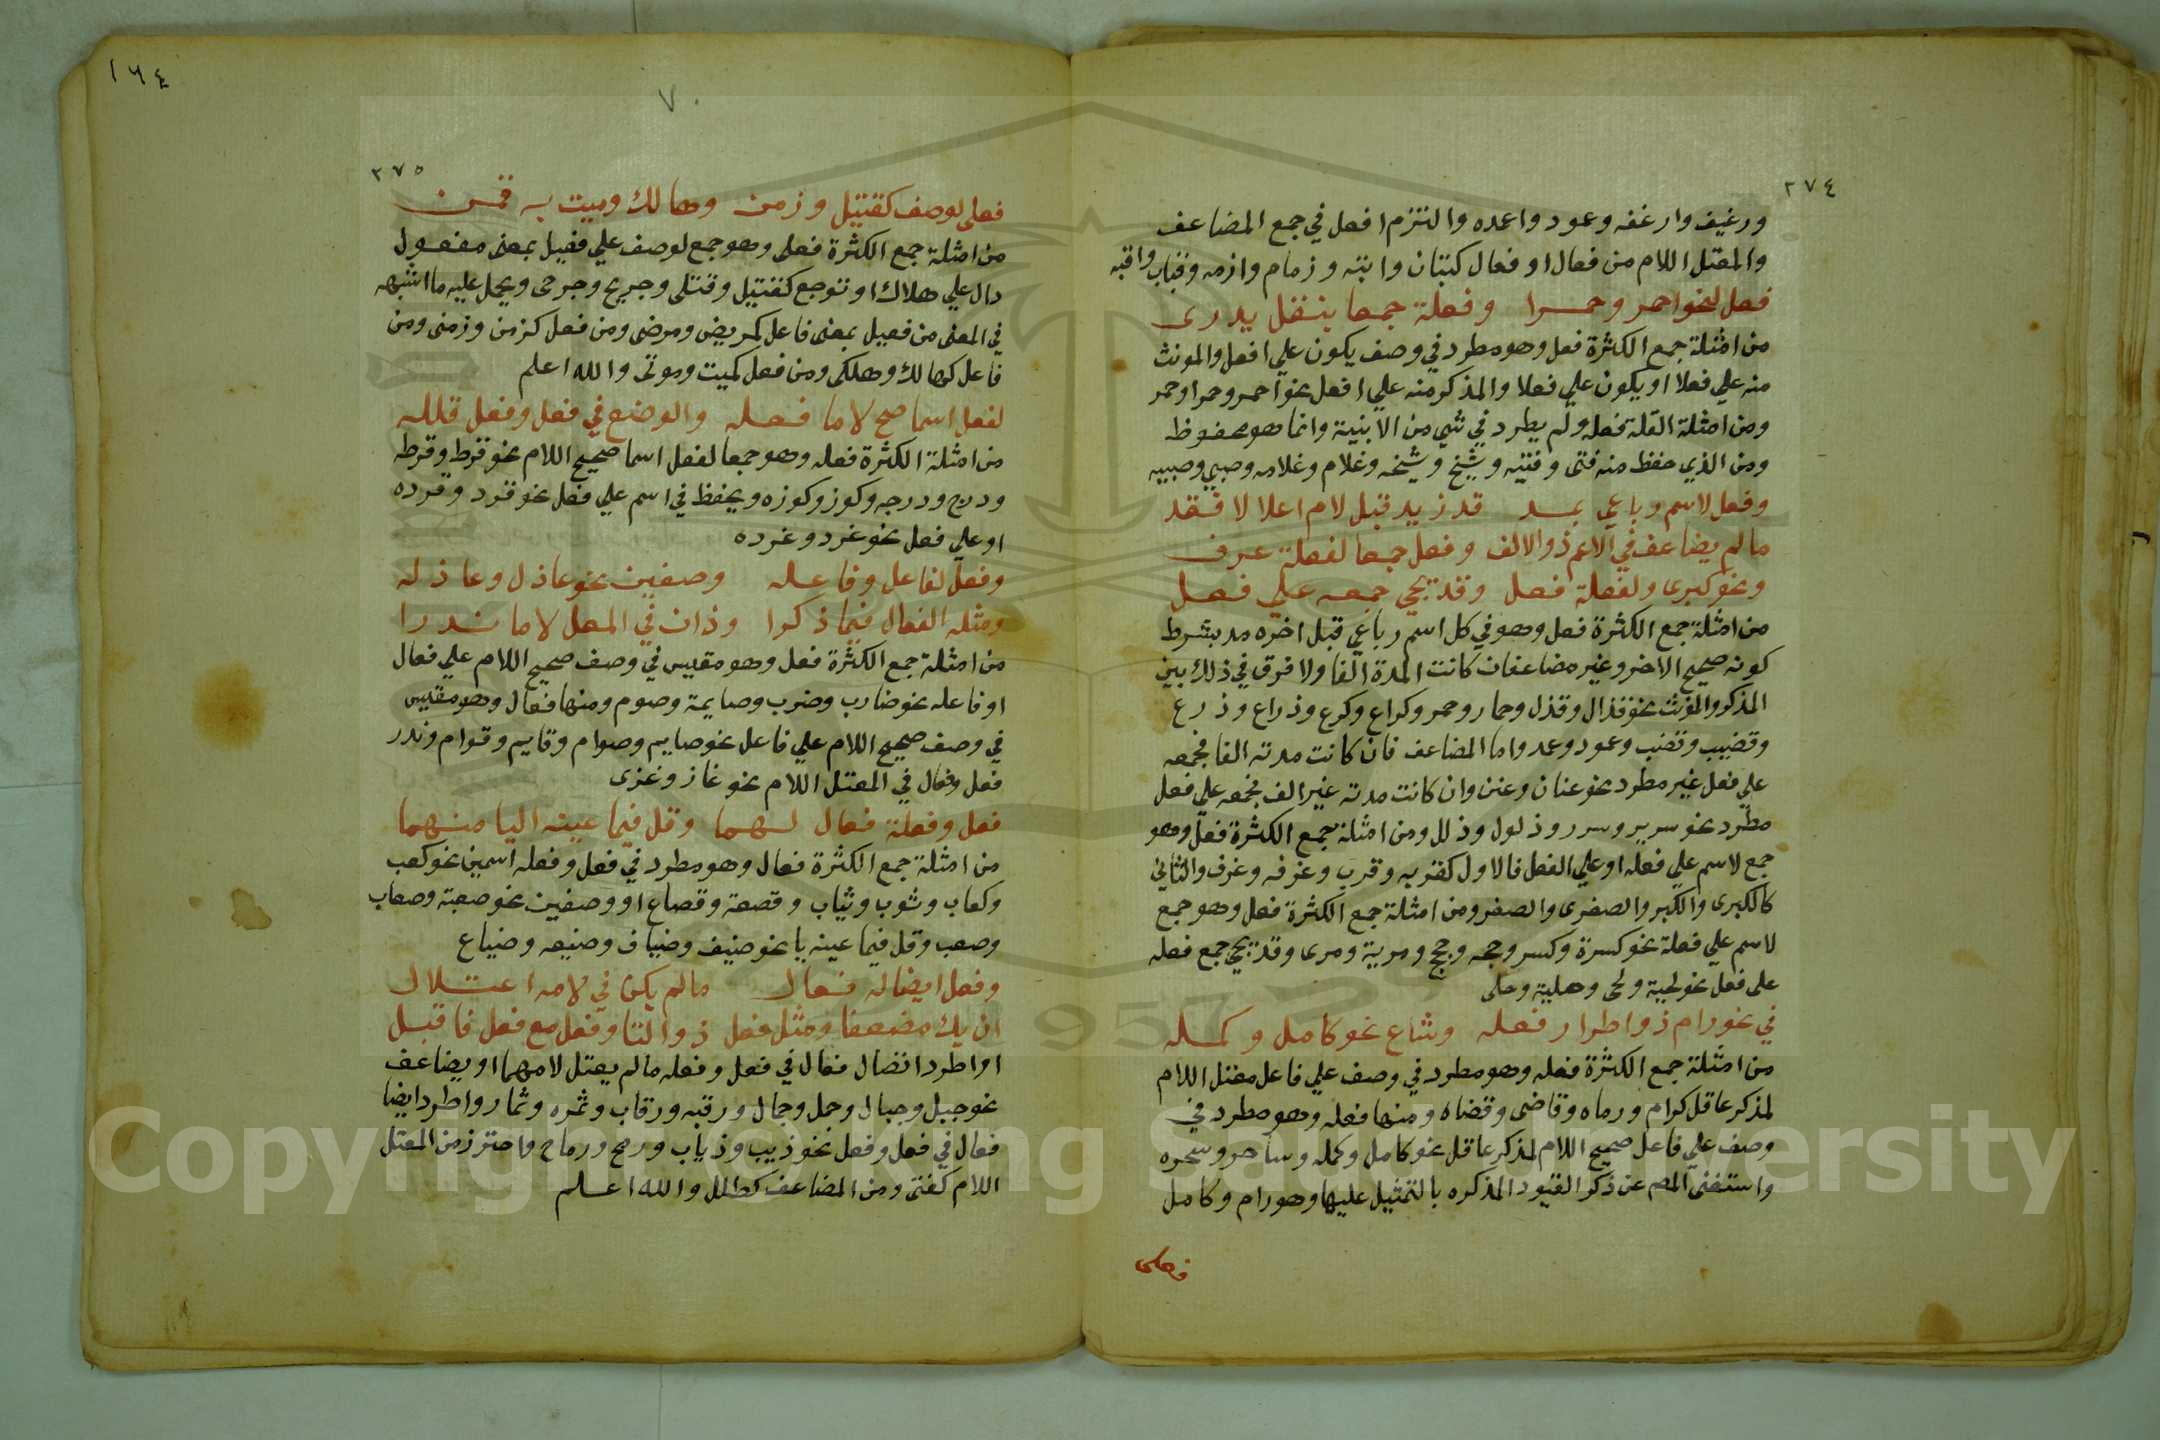 ٢٧٤
ورغيف وارغفه وعمود واعمده والتزم افعل في جمع المضاعف
والمعتل اللام من فعال او فعال كبتان وابته وزمام وازمه وقباب واقبه
فعل لنحو احمر وحمرا وفعلة جمعا بنقل يدرى
من امثلة جمع الكثرة فعل وهو مطرد في وصف يكون علي افعل والمونث
منه علي فعلا او يكون علي فعلا والمذكر منه علي افعل نحو احمر وحمرا وحمر
ومن امثلة القلة فعله ولم يطرد في شي من الابنية وانما هو محفوظ
ومن الذي حفظ منه فتى وفتيه وشيخ وشيخه وغلام وغلامه وصبي وصبيه
وفعل لاسم رباعي بمد قد زيد قبل لام اعلا لا فقد
مالم يضاعف في الاعم ذو الالف وفعل جمعا لفعلة عرف
ونحو كبرى ولفعلة فعل وقد يجي جمعه علي فعل
من امثلة جمع الكثرة فعل وهو في كل اسم رباعي قبل اخره مد بشرط
كونه صحيح الاخر وغير مضاعف ان كانت المدة الفا ولا فرق في ذلك بين
المذكر والمؤنث نحو قذال وقذل وحمار وحمر وكراع وكرع وذراع وذرع
وقضيب وقضب وعمود وعمد واما المضاعف فان كانت مدته الفا فجمعه
علي فعل غير مطرد نحو عنان وعنن وان كانت مدته غير الف فجمعه علي فعل
مطرد نحو سرير وسرر وذلول وذلل ومن امثلة جمع الكثرة فعل وهو
جمع لاسم علي فعله او علي الفعلى فالاول كقربه وقرب وغرفه وغرف والثاني
كالكبرى والكبر والصغرى والصغر ومن امثلة جمع الكثرة فعل وهو جمع
لاسم علي فعلة نحو كسرة وكسر وحجه وحجج ومرية ومرى وقد يجي جمع فعله
على فعل نحو لحية ولحى وحلية وحلى
في نحو رام ذو اطراد فعله وشاع نحو كامل وكمله
من امثلة جمع الكثرة فعله وهو مطرد في وصف علي فاعل معتل اللام
لمذكر عاقل كرام ورماه وقاضى وقضاه ومنها فعله وهو مطرد في
وصف علي فاعل صحيح اللام لمذكر عاقل نحو كامل وكمله وساحر وسحره
واستغنى المص عن ذكر القيود المذكره بالتمثيل عليها وهو رام وكامل
فعلى
١٦٤
٧٠
٢٧٥
فعلى لوصف كقتيل وزمن وهالك وميت به قمن
من امثلة جمع الكثرة فعلى وهو جمع لوصف علي فعيل بمعنى مفعول
دال علي هلاك او توجع كقتيل وقتلى وجريح وجرحى ويحمل عليه ما اشبهه
في المعنى من فعيل بمعنى فاعل كمريض ومرضى ومن فعل كزمن وزمنى ومن
فاعل كهالك وهلكى ومن فعل كميت وموتى والله اعلم
لفعل اسما صح لاما فعله والوضع في فعل وفعل قلله
من امثلة الكثرة فعله وهو جمعا لفعل اسما صحيح اللام نحو قرط وقرطه
ودرج ودرجه وكوز وكوزه ويحفظ في اسم علي فعل نحو قرد وقرده
او علي فعل نحو غرد وغرده
وفعل لفاعل وفاعله وصفين نحو عاذل وعاذله
ومثله الفعال فيما ذكرا وذان في المعل لاما ندرا
من امثلة جمع الكثرة فعل وهو مقيس في وصف صحيح اللام علي فعال
او فاعله نحو ضارب وضرب وصايمة وصوم ومنها فعال وهو مقيس
في وصف صحيح اللام علي فاعل نحو صايم وصوام وقايم وقوام وندر
فعل وفعال في المعتل اللام نحو غاز وغزى
فعل وفعلة فعال لهما وقل فيما عينه اليا منهما
من امثلة جمع الكثرة فعال وهو مطرد في فعل وفعله اسمين نحو كعب
وكعاب وثوب وثياب وقصعة وقصاع او وصفين نحو صعبة وصعاب
وصعب وقل فيما عينه يا نحو ضيف وضياف وضيعه وضياع
وفعل ايضا له فعال مالم يكن في لامه اعتلال
ان يك مضعفا ومثل فعل ذو التا وفعل مع فعل فاقبل
او اطرد ايضا فعال في فعل وفعله مالم يعتل لامهما او يضاعف
نحو جبل وجبال وجمل وجمال ورقبه ورقاب وثمره وثمار واطرد ايضا
فعال في فعل وفعل نحو ذيب وذياب ورمح ورماح واحترز من المعتل
اللام كفتى ومن المضاعف كطلل والله اعلم